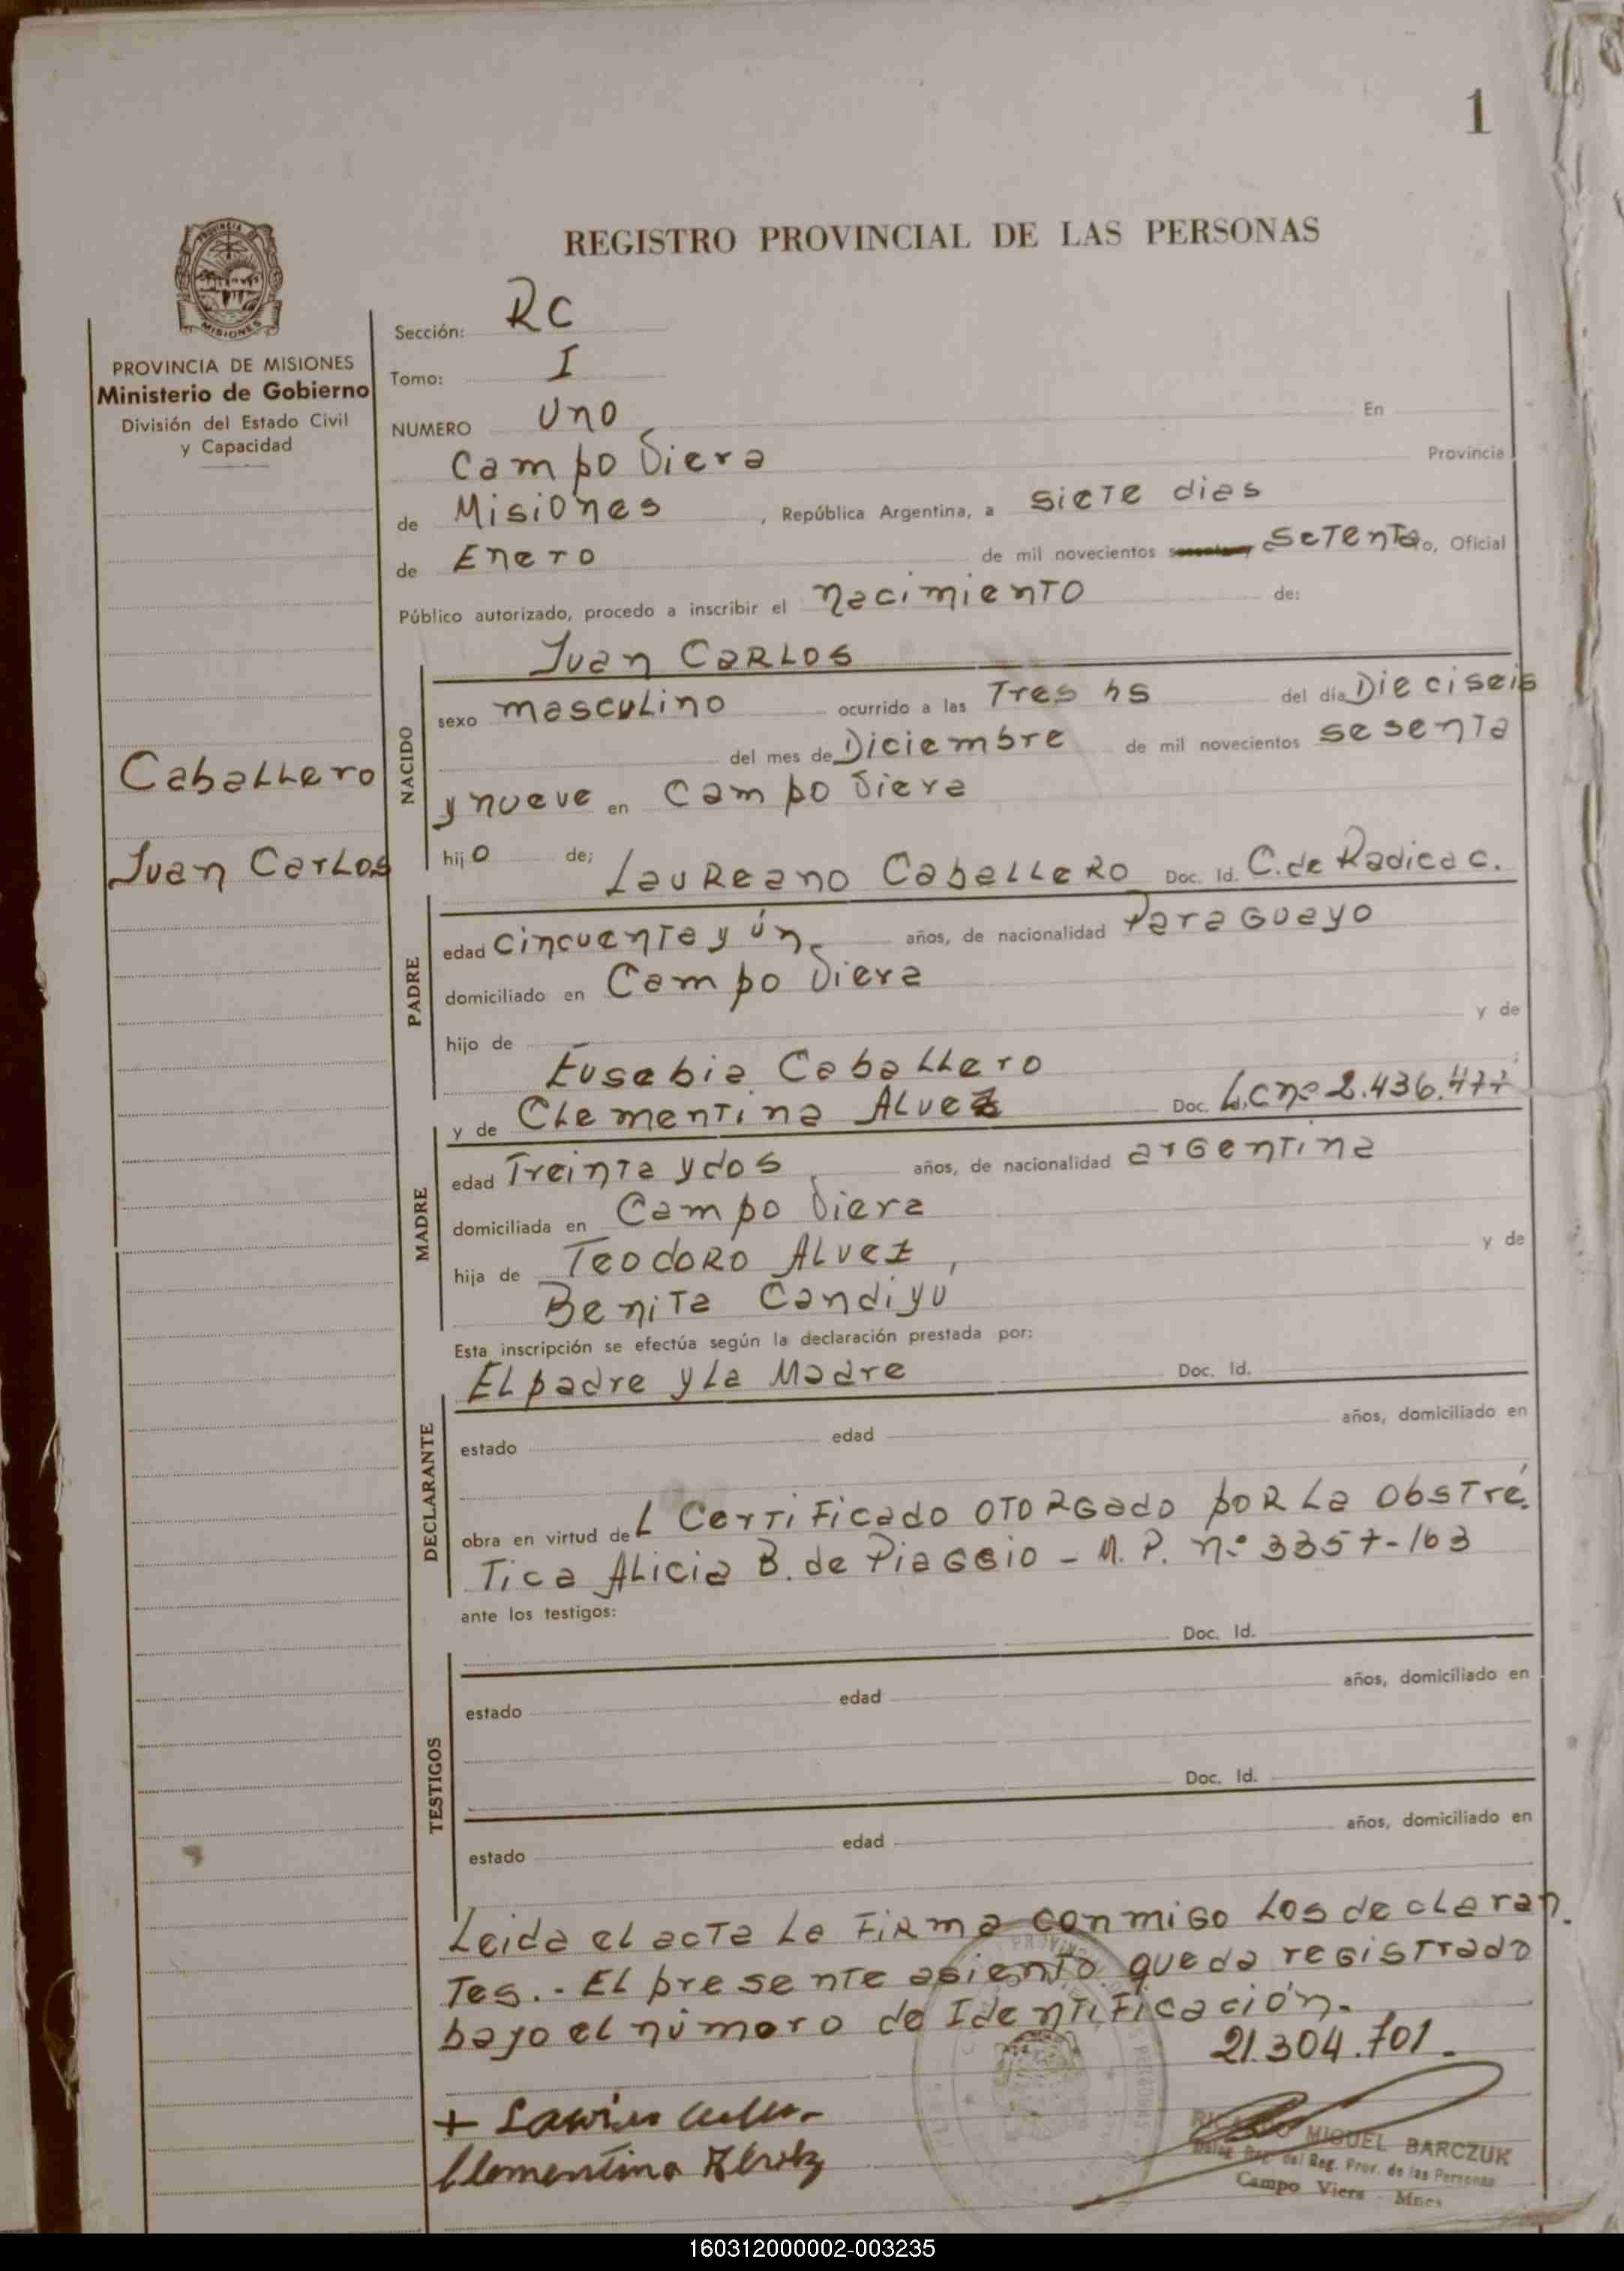 1
REGISTRO PROVINCIAL DE LAS PERSONAS
PROVINCIA DE MISIONES
MISIONES
PROVINCIA DE MISIONES
Ministerio de Gobierno
División del Estado Civil
y Capacidad
Sección: RC
Tomo: I
NUMERO Uno En
Campo Viera Provincia
de Misiones, República Argentina, a siete dias
de Enero de mil novecientos setenta o, Oficial
Público autorizado, procedo a inscribir el nacimiento de:
Juan Carlos
NACIDO
sexo masculino ocurrido a las Tres hs del día Dieciseis
del mes de Diciembre de mil novecientos sesenta
y nueve en Campo Viera
Caballero
Juan Carlos
hijo de; Laureano Caballero Doc. Id. C. de Radicac.
PADRE
edad cincuenta y ún años, de nacionalidad Paraguayo
domiciliado en Campo Viera
hijo de y de
Eusebia Caballero
y de Clementina Alvez Doc. Id. Lc nº 2.436.477
MADRE
edad Treinta y dos años, de nacionalidad argentina
domiciliada en Campo Viera
hija de Teodoro Alvez, y de
Benita Candiyú
Esta inscripción se efectúa según la declaración prestada por:
El padre y la Madre Doc. Id.
DECLARANTE
estado edad años, domiciliado en
obra en virtud del Certificado otorgado por la obsté.
tica Alicia B. de Piaggio - M. P. nº 3357-163
ante los testigos:
Doc. Id.
TESTIGOS
estado edad años, domiciliado en
Doc. Id.
estado edad años, domiciliado en
Leida el acta la firma conmigo los declaran.
tes. - El presente asiento queda registrado
bajo el número de Identificación.
21.304.701.
Clementina
MIGUEL BARCZUK
del Reg. Prov. de las Personas
Campo Viera - Mnes
160312000002-003235